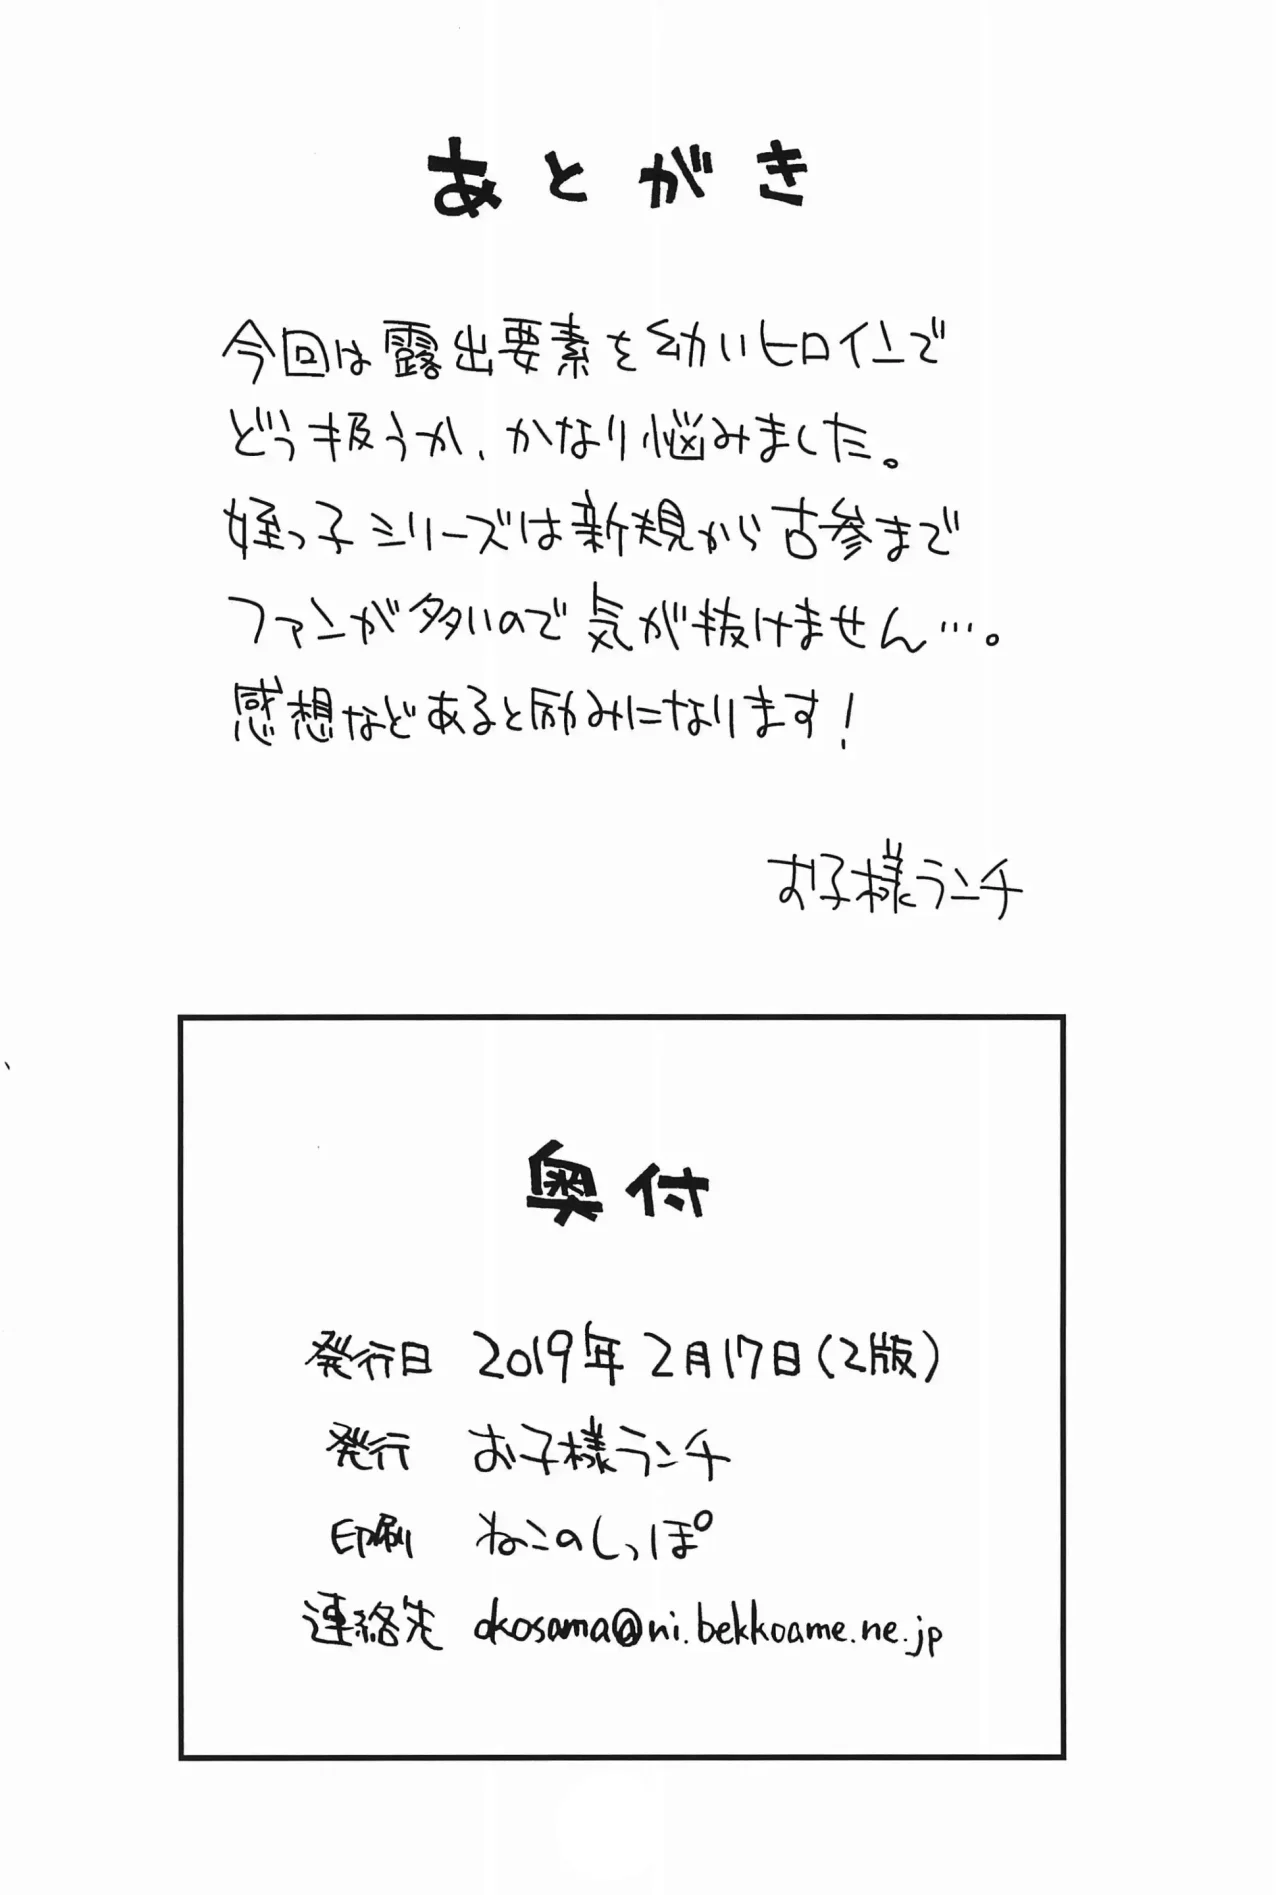 あとがき
今回は露出要素を幼いヒロインで
どう扱うか、かなり悩みました。
姪っ子シリーズは新規から古参まで
ファンが多いので気が抜けません…。
感想などあると励みになります！
お子様ランチ
奥付
発行日 2019年2月17日(2版)
発行 お子様ランチ
印刷 ねこのしっぽ
連絡先 okosama@ni.bekkoame.ne.jp